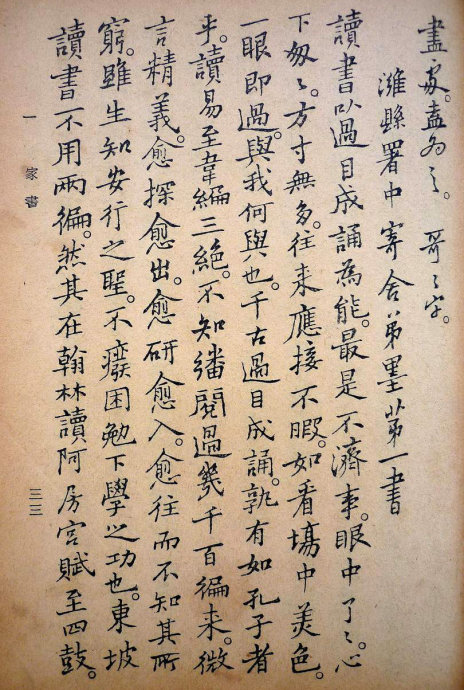 盡家。盡為之。哥之字。
濰縣署中寄舍弟墨第一書
讀書以過目成誦為能。最是不濟事。眼中了了。心
下匆匆。方寸無多。往來應接不暇。如看場中美色。
一眼即過。與我何與也。千古過目成誦。孰有如孔子者
乎。讀易至韋編三絕。不知繙閱過幾千百徧來。微
言精義。愈探愈出。愈研愈入。愈往而不知其所
窮。雖生知安行之聖。不廢困勉下學之功也。東坡
讀書不用兩徧。然其在翰林讀阿房宮賦至四鼓。
一 家書 三三